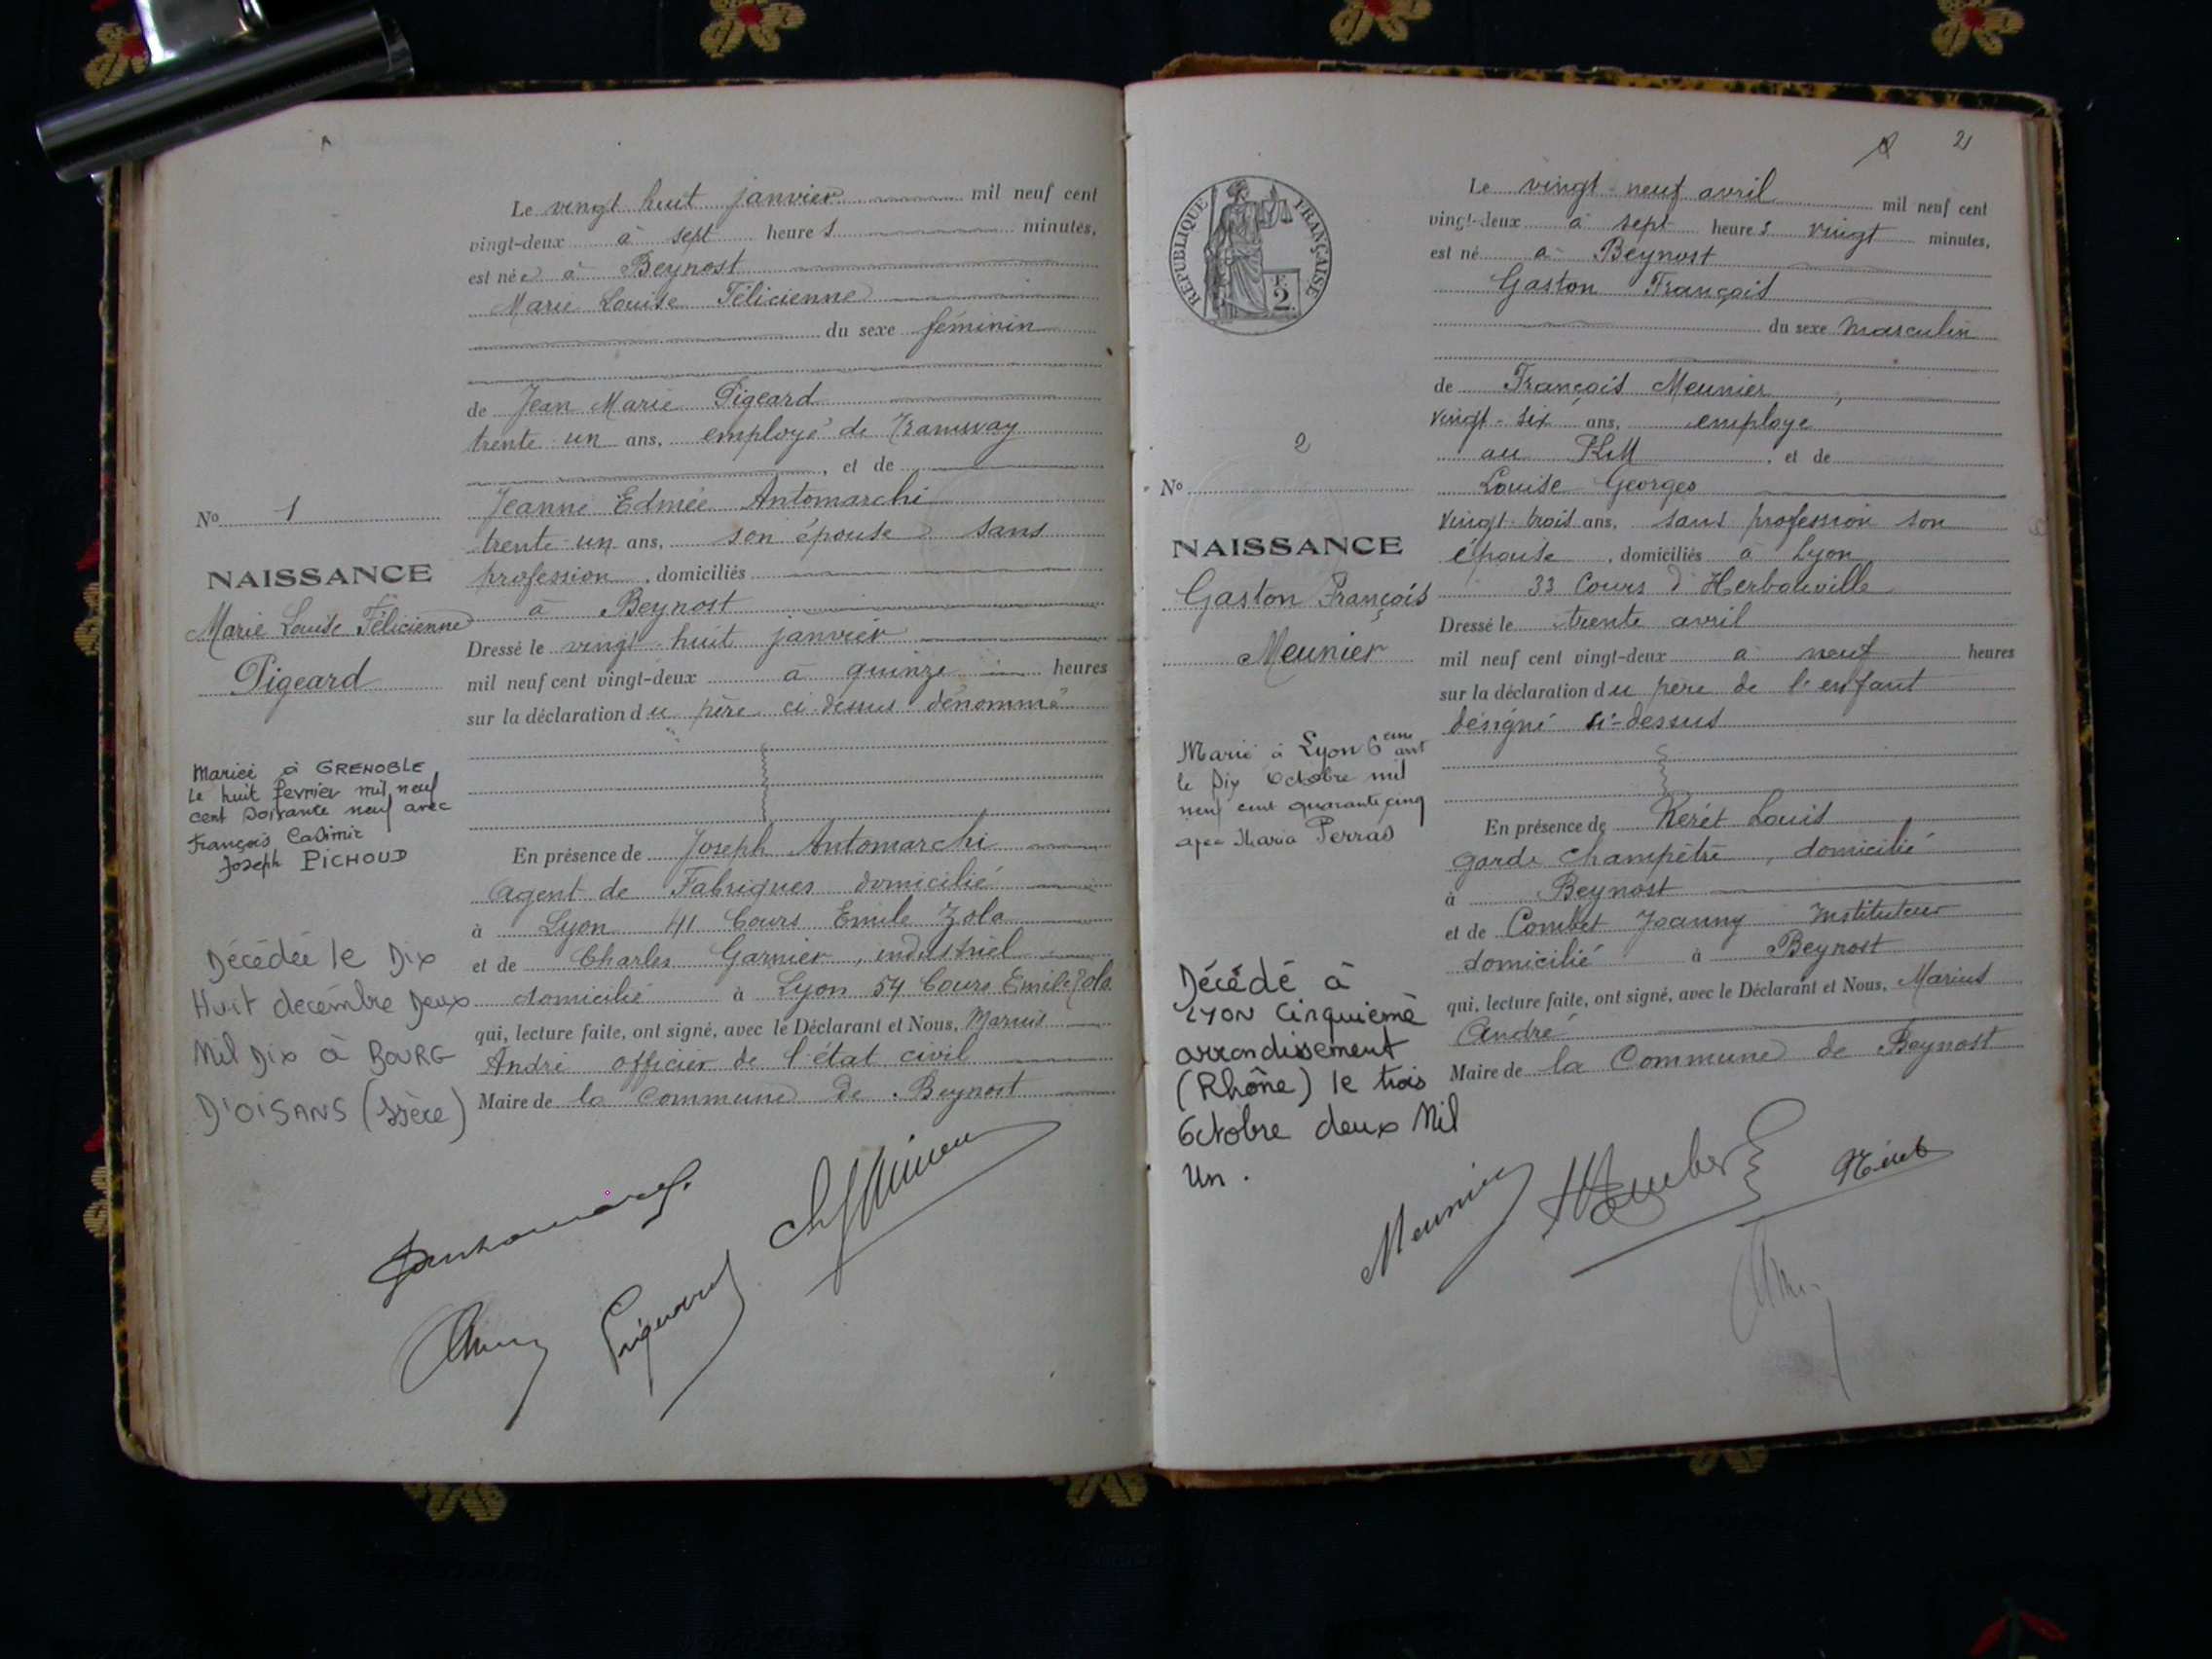 Le vingt huit janvier mil neuf cent
vingt-deux à sept heures minutes,
est née à Beynost
Marie Louise Félicienne
du sexe féminin
de Jean Marie Pigeard
trente un ans, employé de Tramway
, et de
Jeanne Edmée Antomarchi
trente un ans, son épouse sans
profession, domiciliés
à Beynost
Dressé le vingt huit janvier
mil neuf cent vingt-deux à quinze heures
sur la déclaration du père ci-dessus dénommé
En présence de Joseph Antomarchi
Agent de Fabriques domicilié
à Lyon 41 Cours Emile Zola
et de Charles Garnier, industriel
domicilié à Lyon 54 Cours Emile Zola
qui, lecture faite, ont signé, avec le Déclarant et Nous, Marius
André officier de l'état civil
Maire de la Commune de Beynost
No 1
NAISSANCE
Marie Louise Félicienne
Pigeard
Mariée à GRENOBLE
Le huit février mil neuf
cent soixante neuf avec
François Casimir
Joseph PICHOUD
Décédée le Dix
Huit decembre Deux
Mil Dix à BOURG
D'OISANS (Isère)
Pigeard
2
RÉPUBLIQUE FRANÇAISE
F.
2
Le vingt-neuf avril mil neuf cent
vingt-deux à sept heures vingt minutes,
est né à Beynost
Gaston François
du sexe masculin
de François Meunier,
vingt-six ans, employé
au PLM, et de
Louise Georges
vingt-trois ans, sans profession son
épouse, domiciliés à Lyon
33 Cours d'Herbouville
Dressé le trente avril
mil neuf cent vingt-deux à neuf heures
sur la déclaration du père de l'enfant
désigné ci-dessus
En présence de Réret Louis
garde champêtre, domicilié
à Beynost
et de Combet Joanny Instituteur
domicilié à Beynost
qui, lecture faite, ont signé, avec le Déclarant et Nous, Marius
André
Maire de la Commune de Beynost
No 2
NAISSANCE
Gaston François
Meunier
Marié à Lyon 6eme arrt
le Dix Octobre mil
neuf cent quarante cinq
avec Maria Perras
Décédé à
LYON Cinquième
arrondissement
(Rhône) le trois
Octobre deux Mil
Un.
Meunier